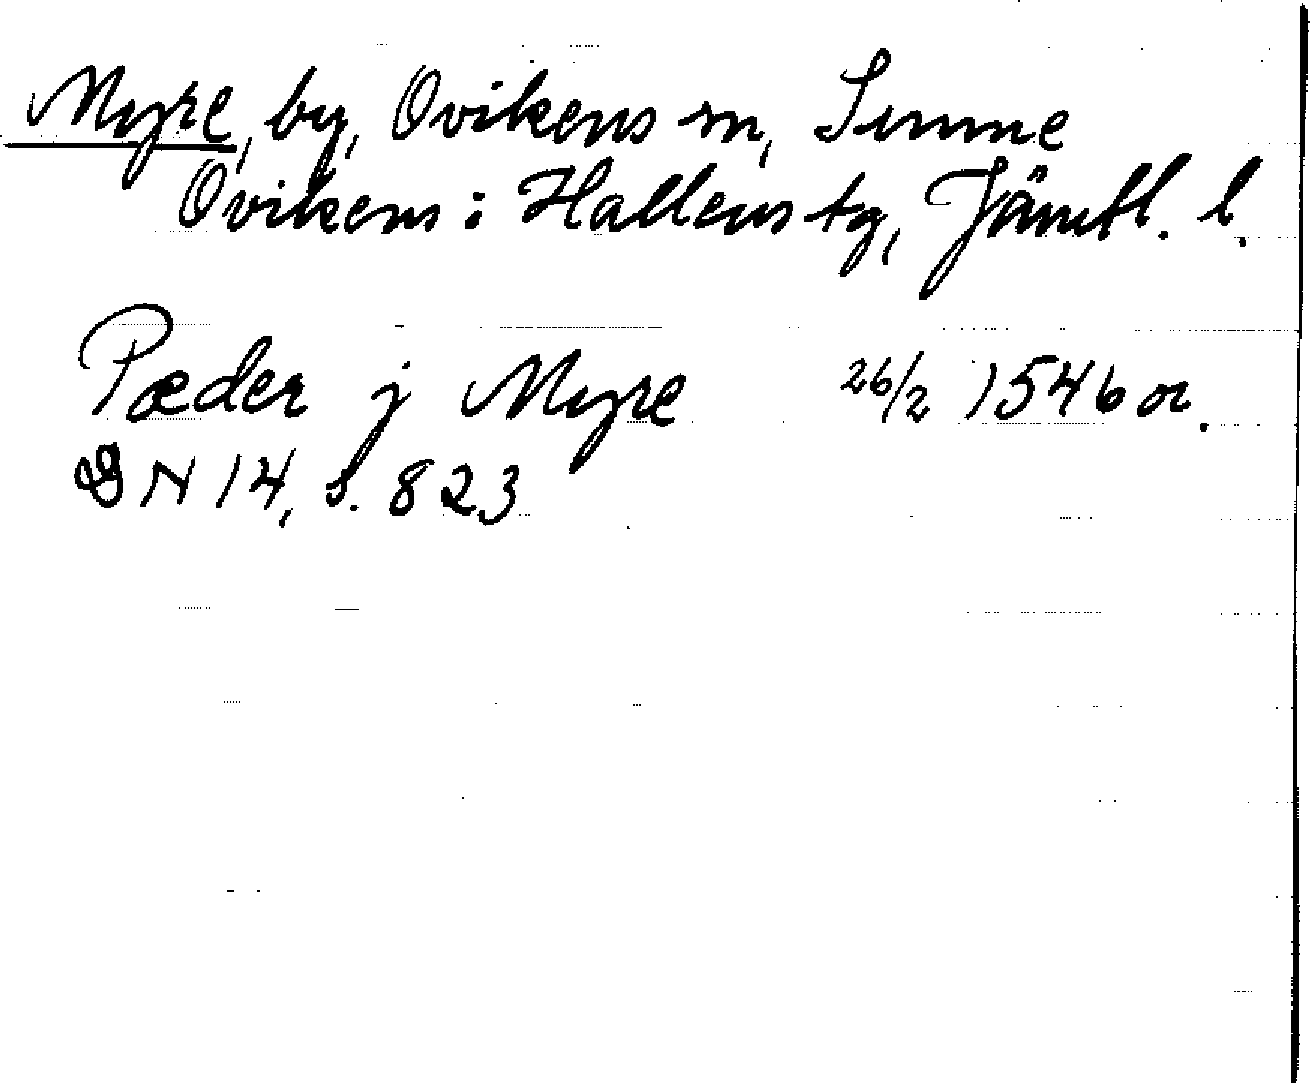 Myre, by, Ovikens sn, Sunne
Ovikens o Hallens tg, Jämtl. l.
Pæder j Myre 26/2 1546 or.
DN 14, s. 823